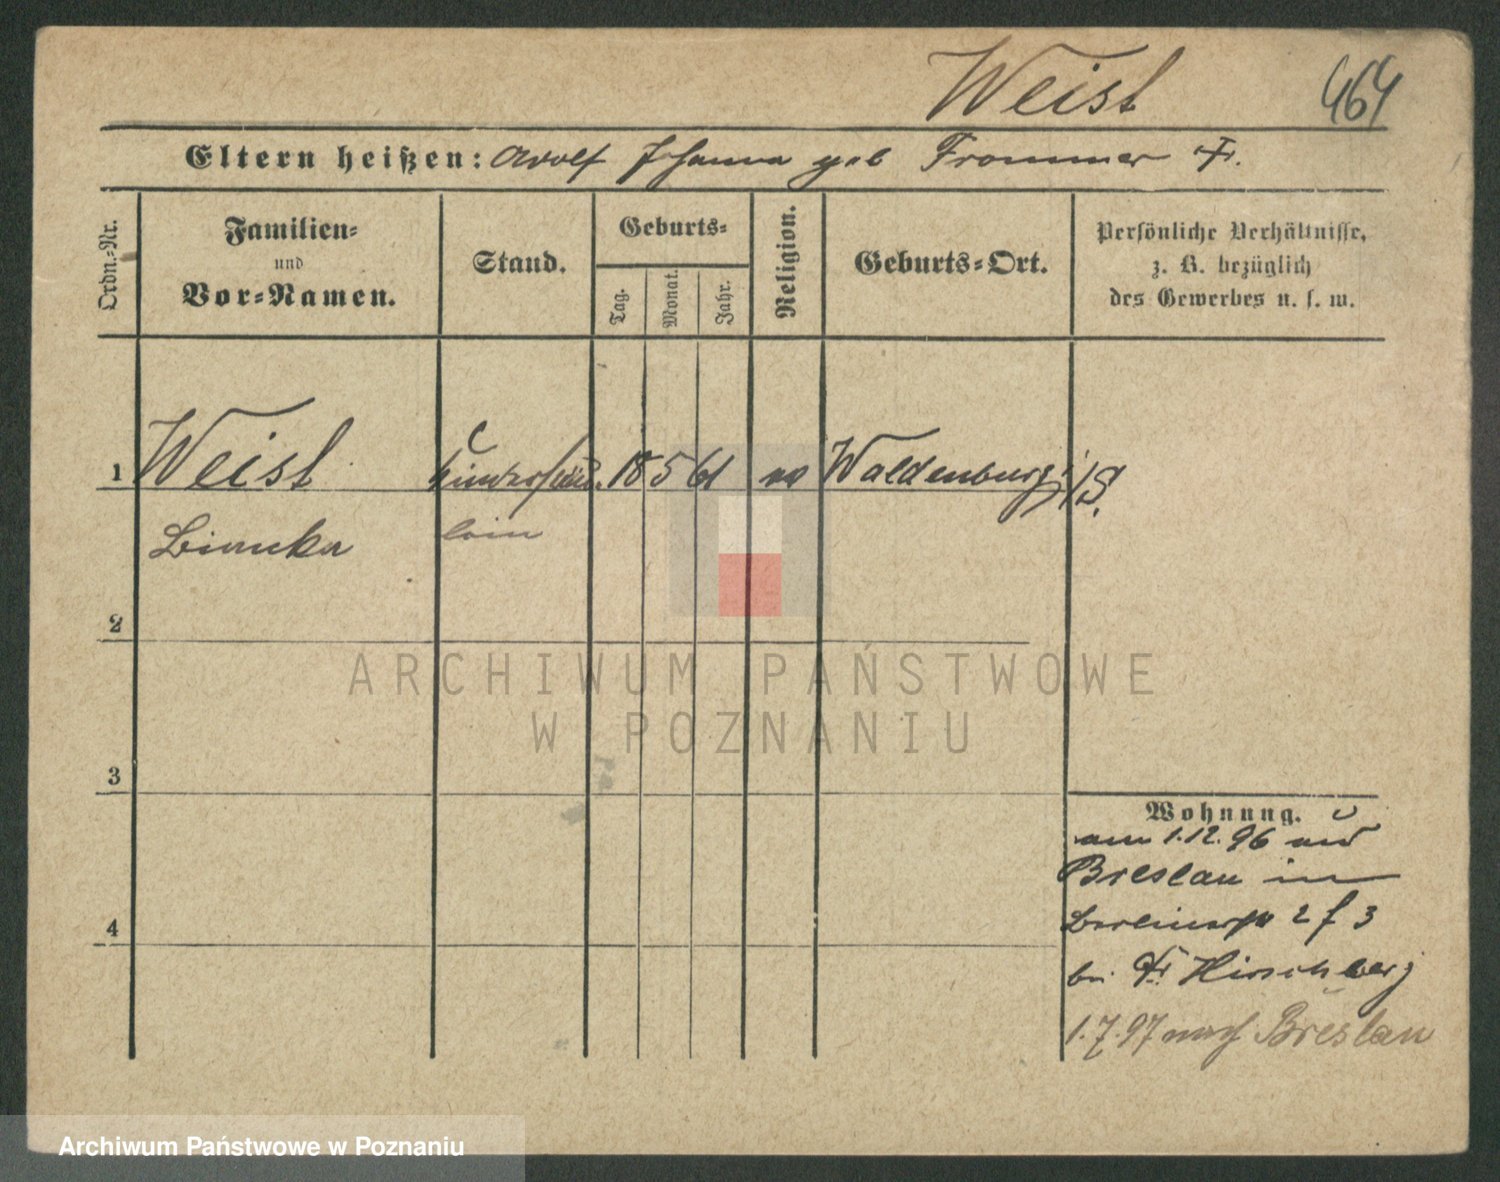 Weist 464
Eltern heißen: Adolf Johanna geb Frommer
Ordn.-Nr.
Familien-
und
Vor-Namen.
Stand.
Geburts-
Tag.
Monat.
Jahr.
Religion.
Geburts-Ort.
Persönliche Verhältnisse,
z. B. bezüglich
des Gewerbes u. s. w.
1 Weist 18 5 61 Waldenburg i/S.
Bianka lein
2
3
4
ARCHIWUM PAŃSTWOWE
W POZNANIU
Wohnung.
am 1.12.96 aus
Breslau in
Berlinerstr 2 f 3
bei Fr. Hirschberg
1.7.97 nach Breslau
Archiwum Państwowe w Poznaniu